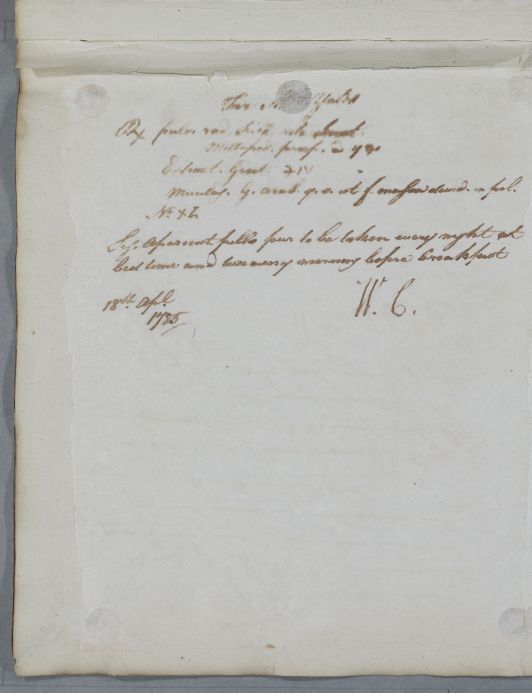 For
℞ pulv. rad.
Milleped. praep. a
Extract. Gent.
Mucilag. G. arab. q.s. ut f. massa divid. in pil.
No. XL
Sig. Aperient pills four to be taken every night at
bed time and two every morning before breakfast
18th Apl.
1785
W. C.